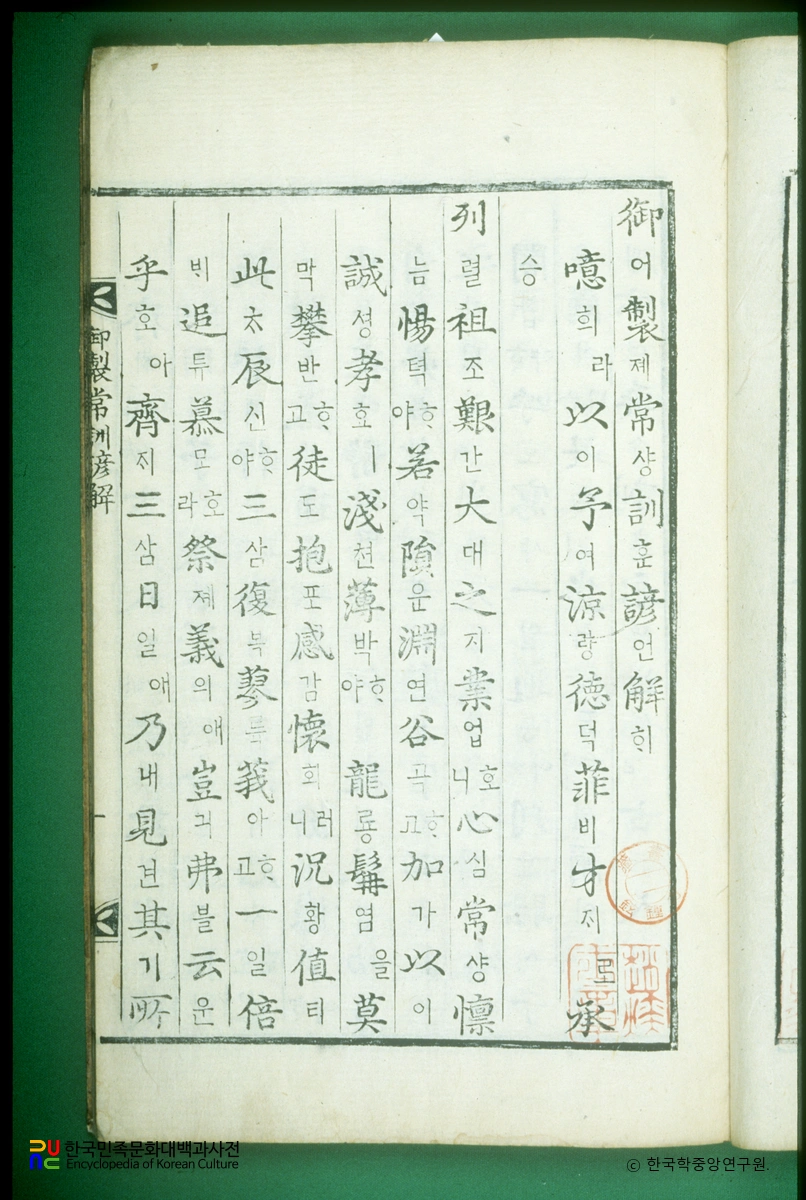 御어製졔常샹訓훈諺언解ᄒᆡ
噫희라以이予여涼량德덕菲비才ᄌᆡ로承
승
列렬祖조艱간大대之지業업호니心심常샹懍
늠惕텩ᄒᆞ야若약隕운淵연谷곡ᄒᆞ고加가以이
誠셩孝효ㅣ淺쳔薄박ᄒᆞ야龍룡髥염을莫
막攀반ᄒᆞ고徒도抱포感감懷회러니況황値티
此ᄎᆞ辰신ᄒᆞ야三삼復복蓼륙莪아ᄒᆞ고一일倍
ᄇᆡ追튜慕모호라祭졔義의예豈긔弗블云운
乎호아齊ᄌᆡ三삼日일애乃내見견其기所
御製常訓諺解
一
한국민족문화대백과사전
Encyclopedia of Korean Culture
© 한국학중앙연구원